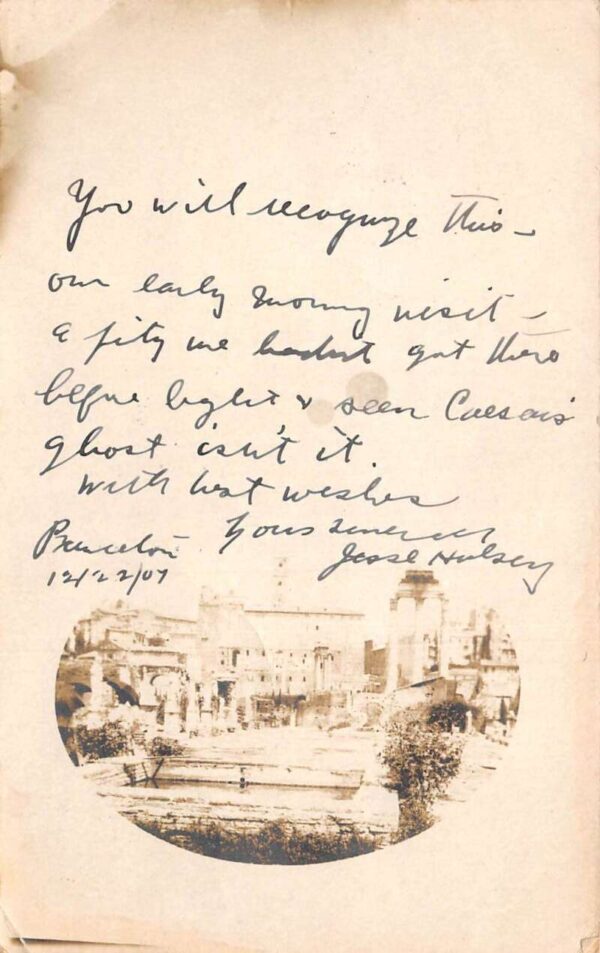 You will recognize this –
our early morning visit –
a pity we hadn't got there
before light & seen Caesar's
ghost isn't it.
With best wishes
Yours sincerely
Princeton Jesse Halsey
12/22/07